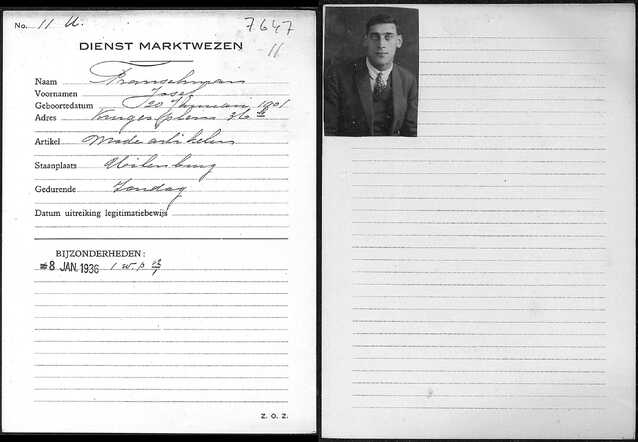 No. 11 U. 7647
11
DIENST MARKTWEZEN
Naam
Voornamen Josef
Geboortedatum 20 Januari 1901
Adres Krugerplein 36 II
Artikel Mode artikelen
Staanplaats Uilenburg
Gedurende Zondag
Datum uitreiking legitimatiebewijs
BIJZONDERHEDEN:
8 JAN. 1936 1 w.p.
Z. O. Z.